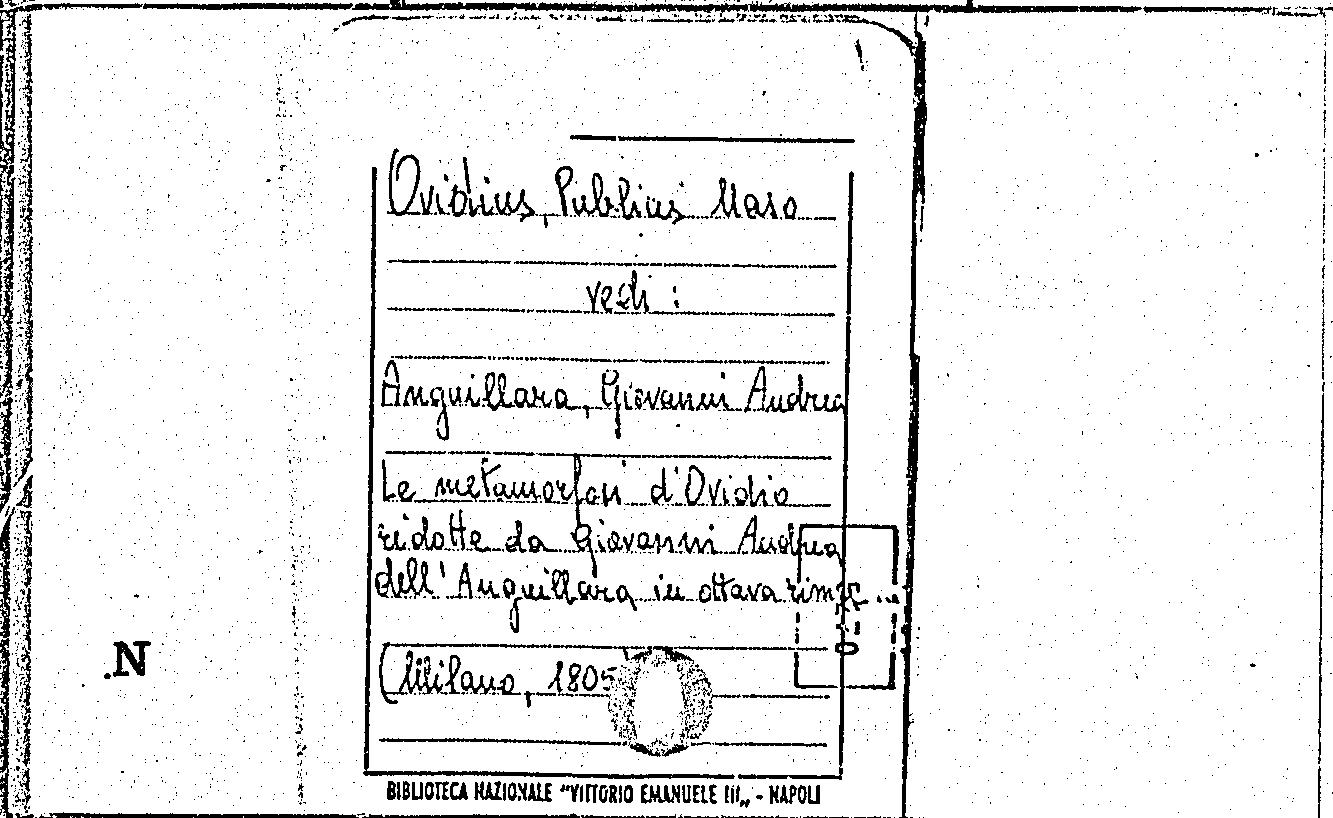 Ovidius, Publius Naso
vedi :
Anguillara, Giovanni Andrea
Le metamorfosi d'Ovidio
ridotte da Giovanni Andrea
dell'Anguillara in ottava rima ...
(Milano, 1805
.N
BIBLIOTECA NAZIONALE "VITTORIO EMANUELE III„ - NAPOLI